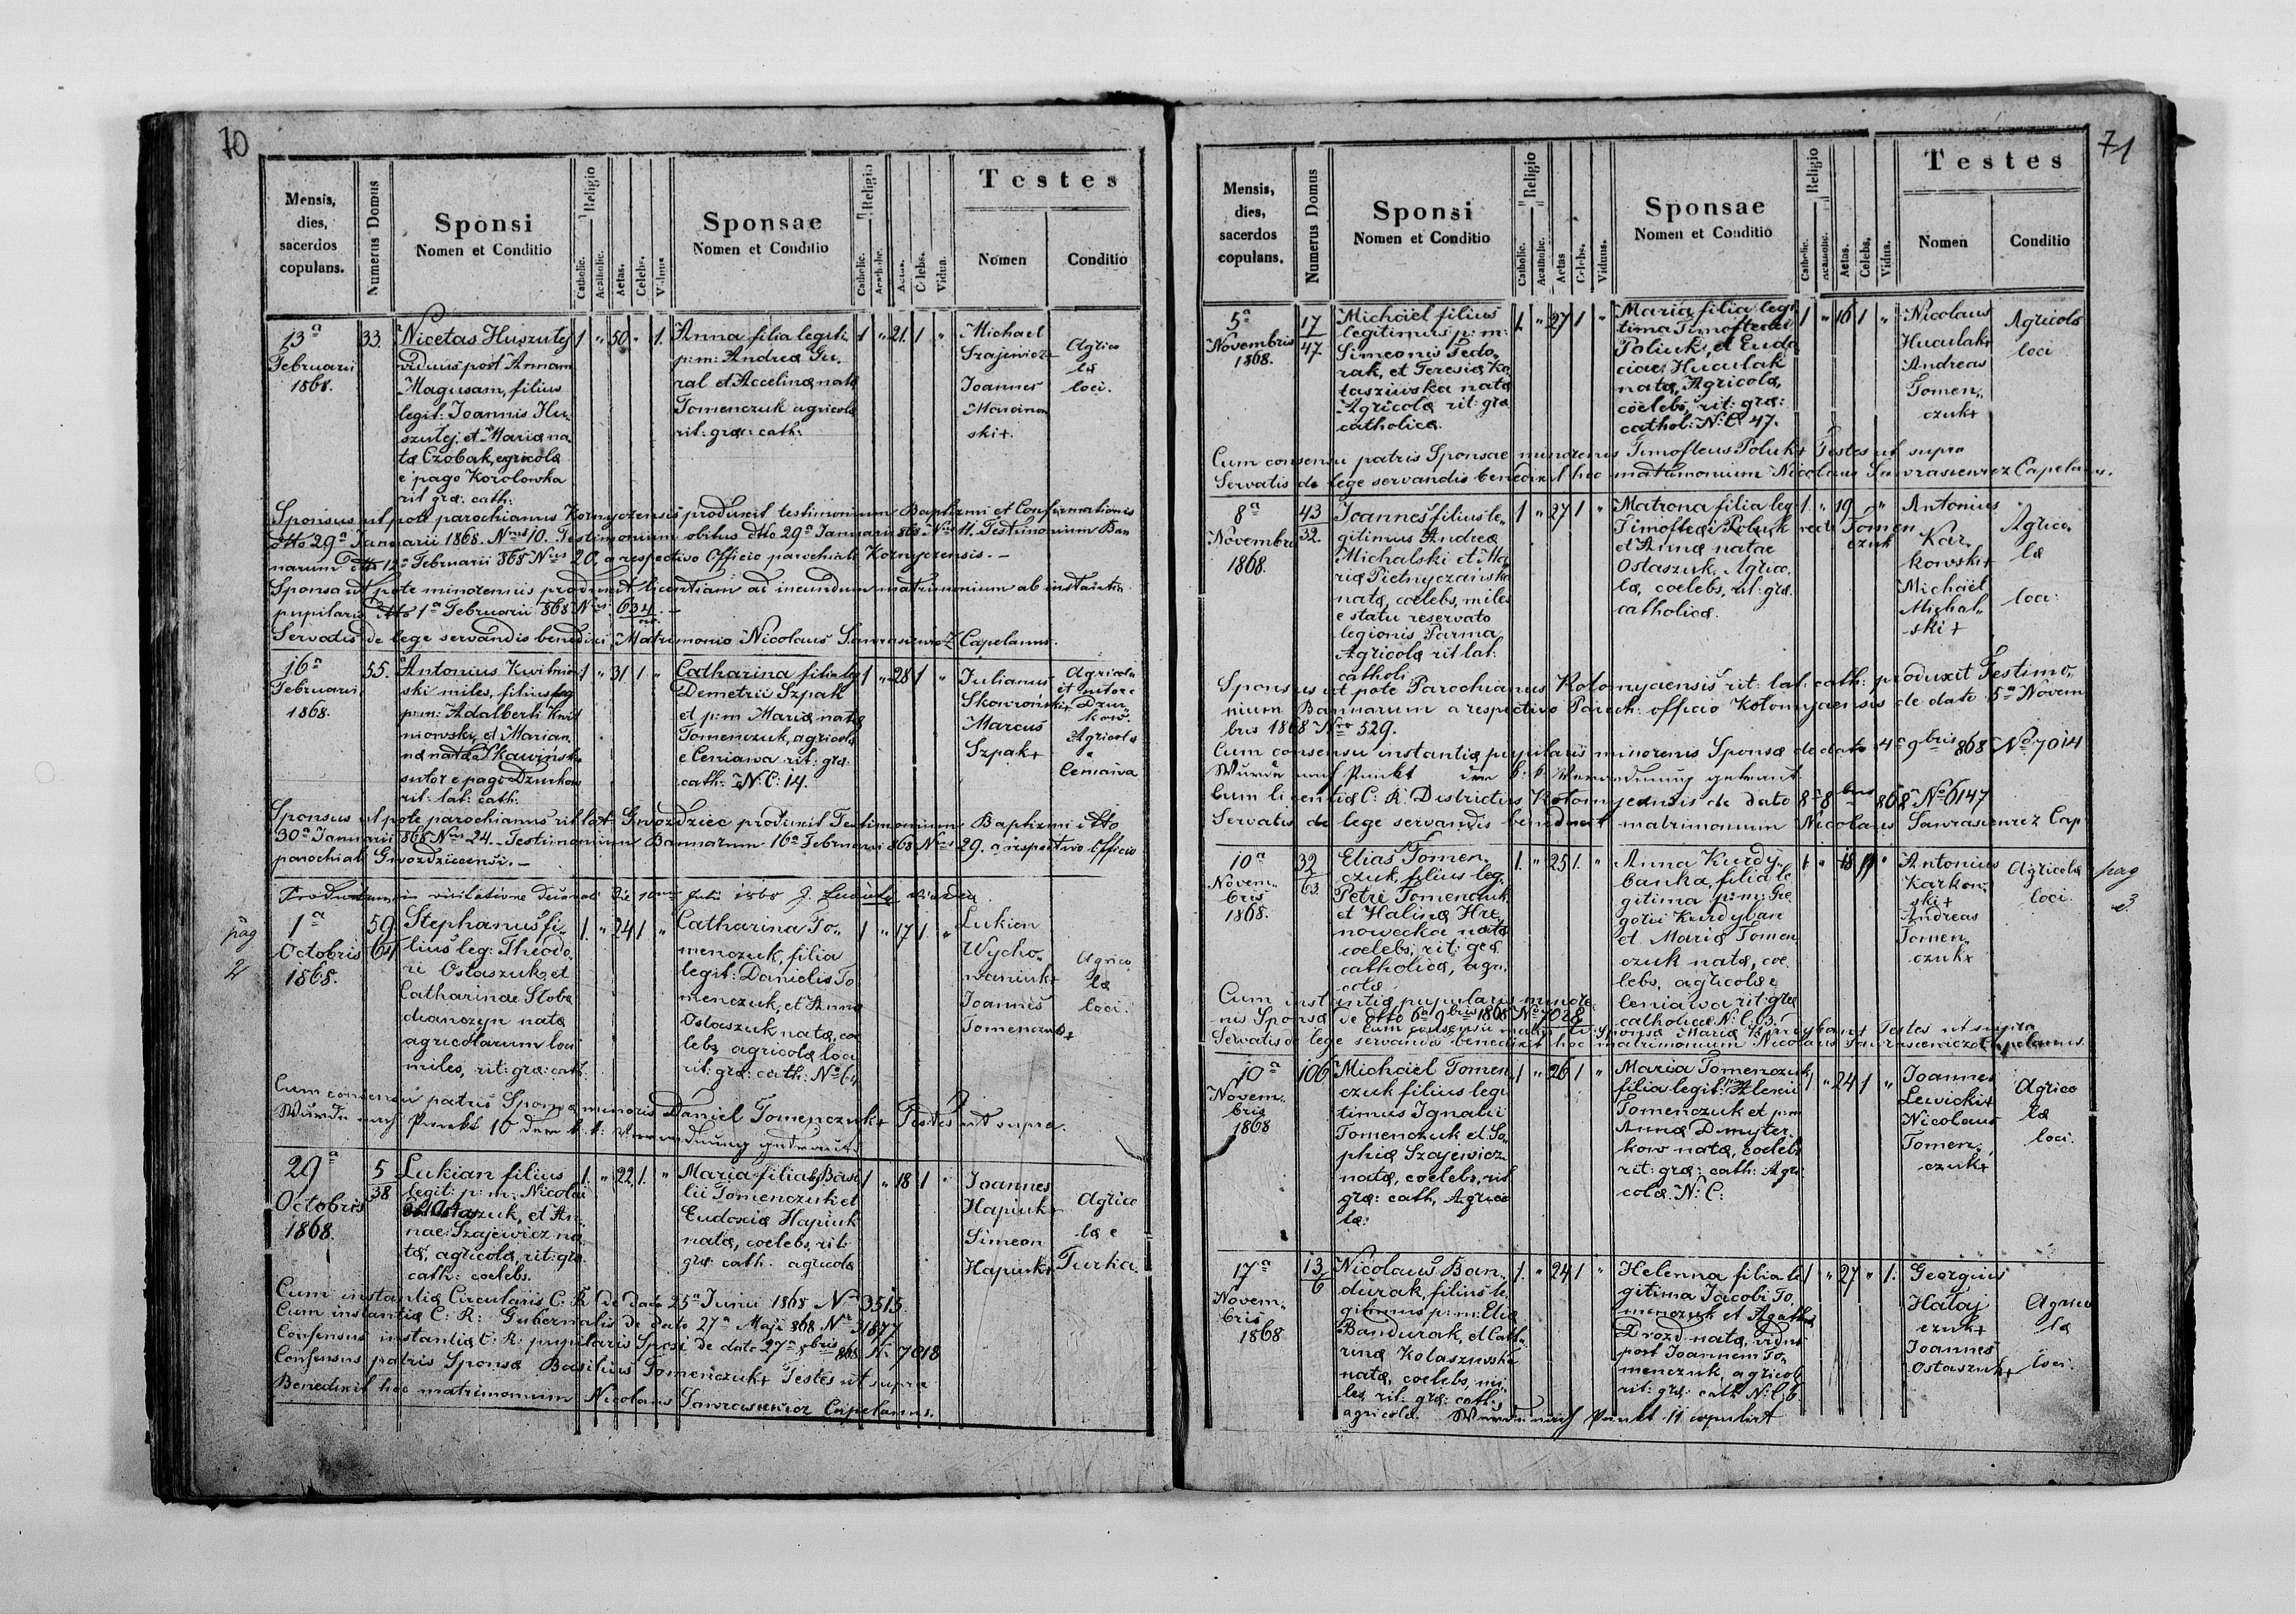 70
Mensis,
dies,
sacerdos
copulans.
Numerus Domus
Sponsi
Nomen et Conditio
Religio
Catholic.
Acatholic.
Aetas.
Celebs.
Viduus
Sponsae
Nomen et Conditio
Religio
Catholic.
Acatholic.
Aetas.
Celebs.
Vidua.
Testes
Nomen
Conditio
13a
Februarii
1868.
33.
Nicetas Huszulej
viduus post Annam
Magusam, filius
legit: Joannis Hu-
szulej et Mariæ na
tæ Czobak, agricolæ
e pago Korolowka
rit græ: cath:
1 " 50 " 1.
Anna filia legiti.
p: m: Andreæ Gu-
ral et Accelinæ natæ
Tomenczuk agricolæ
rit: græ: cath:
1 " 21. 1 "
Michael
Szajewicz+
Joannes
ski+.
Agrico
læ
loci.
Sponsus ut pote parochianus Kornyczensis produxit testimonium Baptismi et Confirmationis
dtto 29a Januarii 1868. Nrus 10. Testimonium obitus dtto 29a Januarii 868 Nrus 11. Testimonium Ban
narum dtto 12a Februarii 868 Nrus 20. a respectivo Officio parochiali Kornyczensis. –
Sponsa ut pote minorennis produxit licentiam ad ineundum matrimonium ab instantia
pupilaris dtto 1a Februarii 868 Nrus 634. –
Servatis de lege servandis benedixi Matrimonio Nicolaus Sawrasiewicz Capelanus.
16a
Februarii
1868.
55.
Antonius Kwitnio
ski miles, filius leg
p: m: Adalberti Kwit
niowski, et Marian
næ natæ Skawińsk
sutor e pago Dzurkow
rit: lat: cath:
1 " 31 1 "
Catharina filia leg
Demetrii Szpak
et p: m Mariæ natæ
Tomenczuk, agricolæ
e Ceniawa rit: græ:
cath: N: C: 14.
1 " 28 1 "
Julianus
Skowroński+
Marcus
Szpak+
Agricola
et sutor e
Dzur-
kow.
Agricola
e
Ceniawa
Sponsus ut pote parochianus rit lat: Gwozdziec produxit Testimonium Baptismi dtto
30a Januarii 868 Nrus 24. – Testimonium Bannarum 16a Februarii 868 Nrus 29. a respectivo Officio
parochiali Gwozdziecensi. –
Productum in visitatione decanali die 10 Julii 1868
pag
2
1a
Octobris
1868.
59
64
Stephanus fi-
lius leg: Theodo-
ri Ostaszuk, et
Catharinae Słobo
dianczyn natæ
agricolarum loci
miles, rit: græ: cath:
1. " 24 1 "
Catharina To-
menczuk, filia
legit: Danielis To
menczuk, et Annæ
Ostaszuk natæ, cœ
lebs, agricolæ loci
rit: græ: cath: No 64
1 " 17 1 "
Lukien
Wycho-
waniuk+
Joannes
Tomenczuk+
Agrico
læ
loci.
Cum consensu patris Sponsæ minoris Daniel Tomenczuk+ Testes ut supra.
Wurde nach Punkt 10 dem k: k: Verordnung getraut.
29a
Octobris
1868.
5
38
Lukian filius
legit: p: m: Nicolai
Ostaszuk, et An-
nae Szajewicz na
tæ, agricolæ, rit: græ:
cath: coelebs.
1. " 22. 1. "
Maria filia leg Basi
lii Tomenczuk et
Eudoxiæ Hapiuk
natæ, coelebs, rit:
græ: cath: agricolæ
1 " 18 1 "
Joannes
Hapiuk+
Simeon
Hapiuk+
Agrico
læ e
Turka.
Cum instantiæ Circularis C: R: de dato 25a Junii 1868 Nrus 3515.
Cum instantiæ C: R: Gubernalis de dato 27a Maji 868 Nrus 31877
Consensus instantiæ C: R: pupilaris Sponsi de dato 27a bris 868 Nr 7018
Consensus patris Sponsæ Basilius Tomenczuk+ Testes ut supra
Benedixit hoc matrimonium Nicolaus Sawrasiewicz Capelanus.
71
Mensis,
dies,
sacerdos
copulans.
Numerus Domus
Sponsi
Nomen et Conditio
Religio
Catholic.
Acatholic.
Aetas
Celebs.
Viduus.
Sponsae
Nomen et Conditio
Religio
Catholic.
Acatholic.
Aetas.
Celebs.
Vidua.
Testes
Nomen
Conditio
5a
Novembris
1868.
17
47.
Michael filius
legitimus p: m:
Simeonis Fedo-
rak, et Teresiæ Ko
łasziwska natæ
Agricolæ rit: græ
catholicæ.
1. " 27 1 "
Maria filia legi
tima Timoftei
Poliuk, et Eudo
ciae Huculak
natæ, Agricolæ,
coelebs, rit: græ:
cathol: N: C: 47.
1 " 16 1 "
Nicolaus
Huculak+
Andreas
Tomen-
czuk+
Agricolæ
loci
Cum consensu patris Sponsae minorenis Timofteus Poluk+ Testes ut supra
Servatis de lege servandis benedixit hoc matrimonium Nicolaus Sawrasiewicz Capelanus.
8a
Novembris
1868.
43
32.
Joannes filius le-
gitimus Andreæ
Michalski et Ma
riæ Pietnyczańska
natæ, coelebs, miles
e statu reservato
legionis Parma
Agricola rit lat:
catholi
1 " 27 1 "
Matrona filia leg
Timoftei Poluk recte Tomen
czuk
et Annæ natae
Ostaszuk, Agrico
læ, coelebs, rit: græ:
catholicæ.
1. " 19. "
Antonius
Kar-
kowski+
Michael
Michal-
ski+
Agrico-
læ
loci.
Sponsus ut pote Parochianus Kolomyaensis rit: lat: cath: produxit Testimo-
nium Bannarum a respectivo Paroch: officio Kolomyaensis de dato 5a Novem
bris 1868 Nro 529.
Cum consensu instantiæ pupilaris minorenis Sponsæ de dato 4a 9bris 868 No 7014
Wurde nach Punkt dem k: k: Verordnung getraut.
Cum licentia C: R: Districtus Kolomyeensis de dato 8a 8bris 868 No 6147
Servatis de lege servandis benedixit matrimonium Nicolaus Sawrasiewicz Cap
10a
Novem-
bris
1868.
32
63
Elias Tomen-
czuk, filius leg:
Petri Tomenczuk
et Halinæ Hre-
nowecka natæ
coelebs, rit: græ
catholicæ, agri-
colæ
1. " 25 1. "
Anna Kurdy-
banka, filia le
gitima p: m: Gre
gorii Kurdyban
et Mariæ Tomen
czuk natæ, coe-
lebs, agricolæ e
Ceniawa rit: græ
catholicæ N: C: 63.
1 " 18 1 "
Antonius
Karkow-
ski+
Andreas
Tomen-
czuk+
Agricolæ
loci.
pag
3.
Cum instantia pupilaris minore
nis Sponsæ de dtto 6a 9bris 1868 No 7028
Cum consensu matris Sponsæ Mariæ Kurdyban+ Testes ut supra
Servatis de lege servandis benedixit hoc matrimonium Nicolaus Sawrasiewicz Capelanus.
10a
Novem-
bris
1868
106
Michael Tomen
czuk filius legi
timus Ignatii
Tomenczuk et So-
phiæ Szajewicz
natæ, coelebs, rit
græ: cath, Agrico
læ:
1 " 26 1 "
Maria Tomenczuk
filia legit: p: m: Alexii
Tomenczuk et p: m
Annæ Dmyter-
kow natæ, coelebs
rit: græ: cath: Agri
colæ N: C:
1 " 24 1 "
Joannes
Lewicki+
Nicolaus
Tomen-
czuk+
Agrico
læ
loci.
17a
Novem-
bris
1868
13
6
Nicolaus Ban-
durak, filius le-
gitimus p: m: Eliæ
Bandurak, et Cath-
rinæ Kolaszuwska
natæ, coelebs, mi-
les, rit: græ: cath:
agricolæ.
1. " 24 1 "
Helenna filia le
gitima Jacobi To
menczuk et Agathæ
Drozd natæ, vidua
post Joannem To-
menczuk, agricolæ
rit: græ: cath N: C: 6.
1 " 27 " 1.
Georgius
Hałaj
czuk+
Joannes
Ostaszuk+
Agrico
læ
loci.
Wurde nach Punkt 11 copulirt